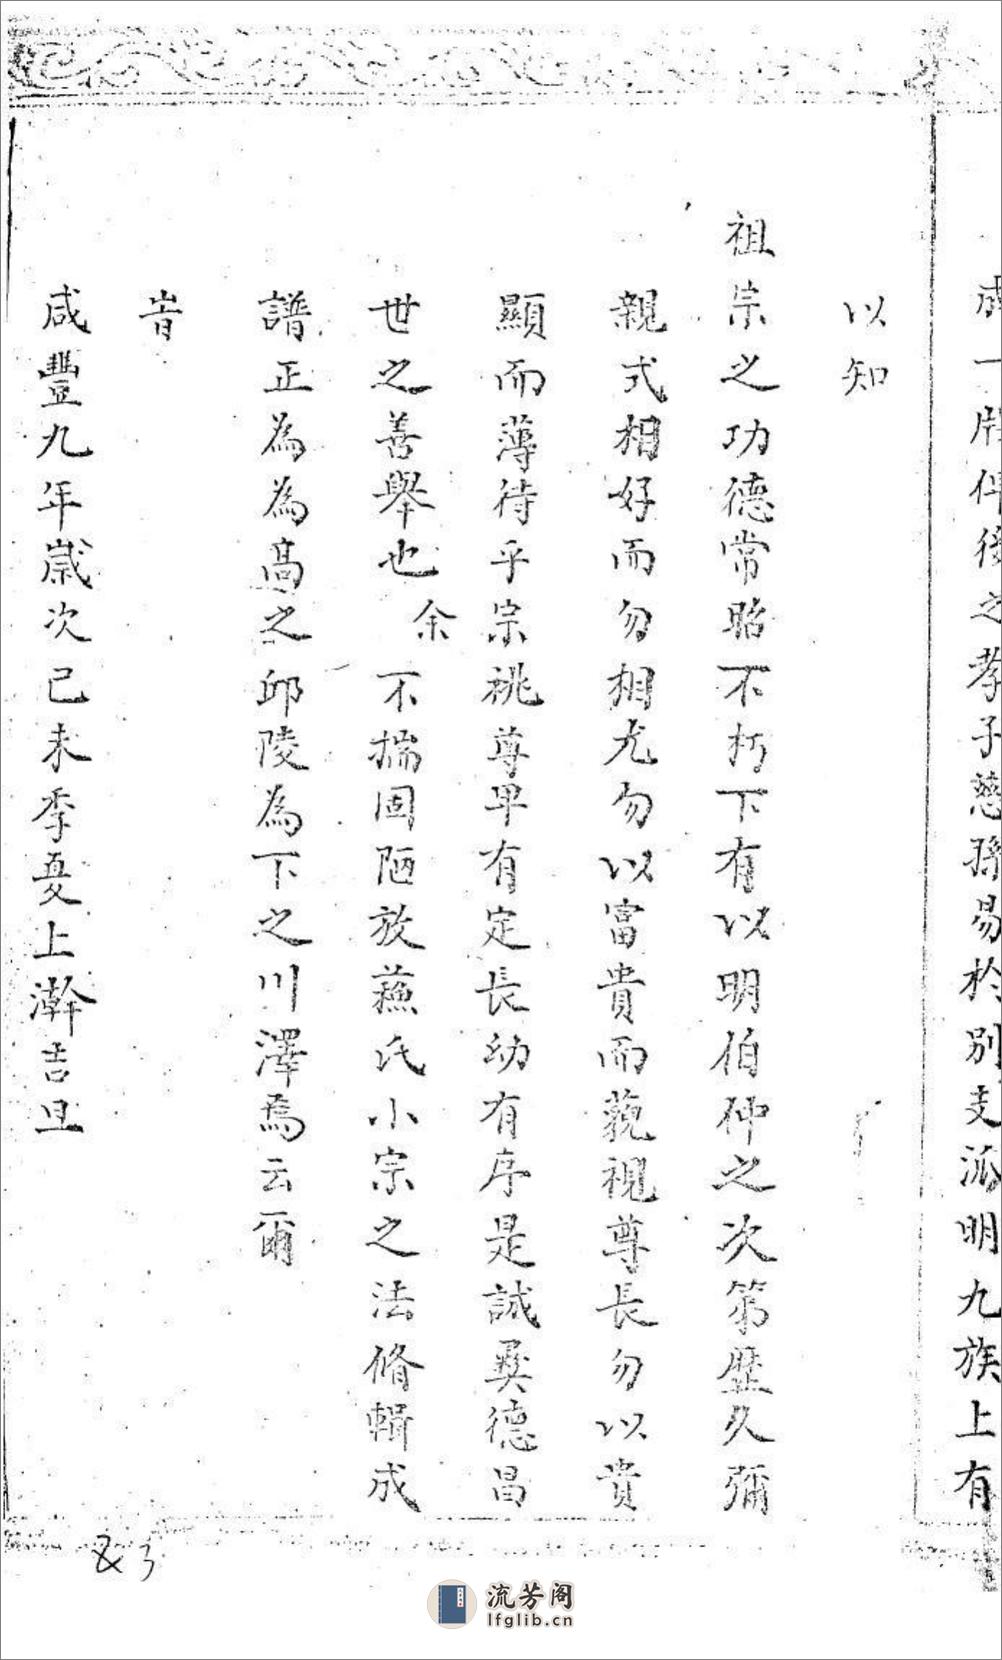 成一牒伴後之孝子慈孫易於別支派明九族上有
以知
祖宗之功德常昭不朽下有以明伯仲之次第歷久彌
親式相好而勿相尤勿以富貴而藐視尊長勿以貴
顯而薄待乎宗祧尊卑有定長幼有序是誠彜德昌
世之善舉也余不揣固陋放蘓氏小宗之法脩輯成
譜正為為高之邱陵為下之川澤焉云爾
旹
咸豐九年嵗次己未季夏上澣吉旦
83
流芳阁
lfglib.cn